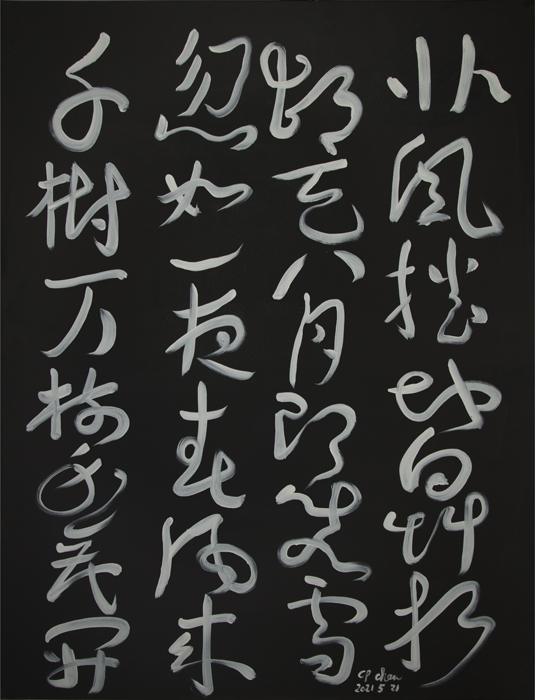 北風捲地白草折
胡天八月即飛雪
忽如一夜春風来
千樹万樹梨花開
CP Chen
2021 5 21